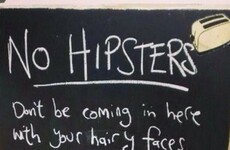 NO HIPSTERS
Don't be coming in here
with your hairy faces